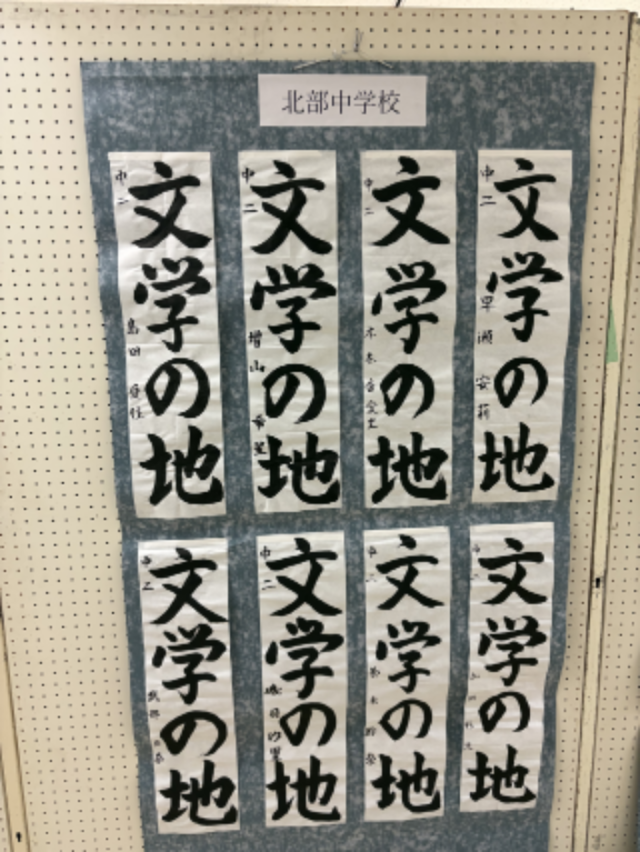 北部中学校
文学の地
中二
早瀬 安莉
文学の地
中二
文学の地
中二
増山 希星
文学の地
中二
島田
文学の地
文学の地
文学の地
中二
文学の地